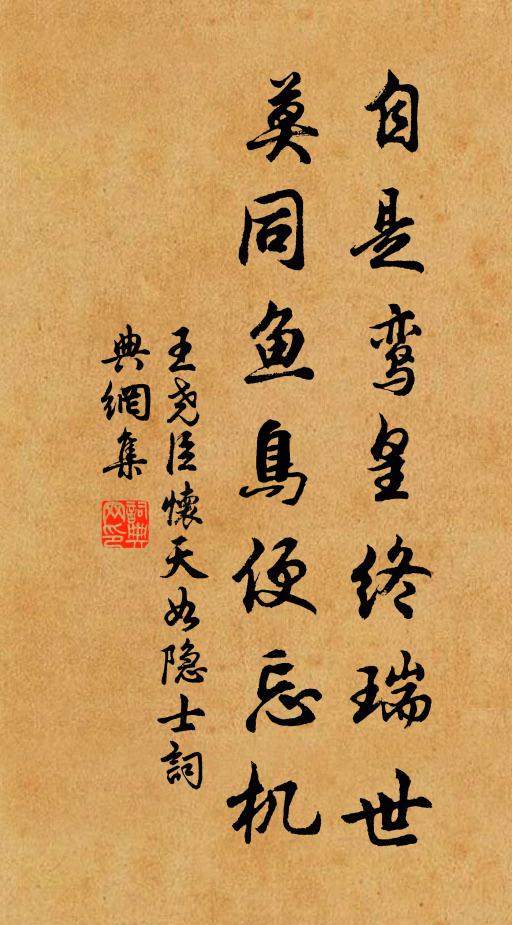 自是鸾皇终瑞世
莫同鱼鳥便忘机
王尧臣懷天如隐士詞
典網集
詞典网印